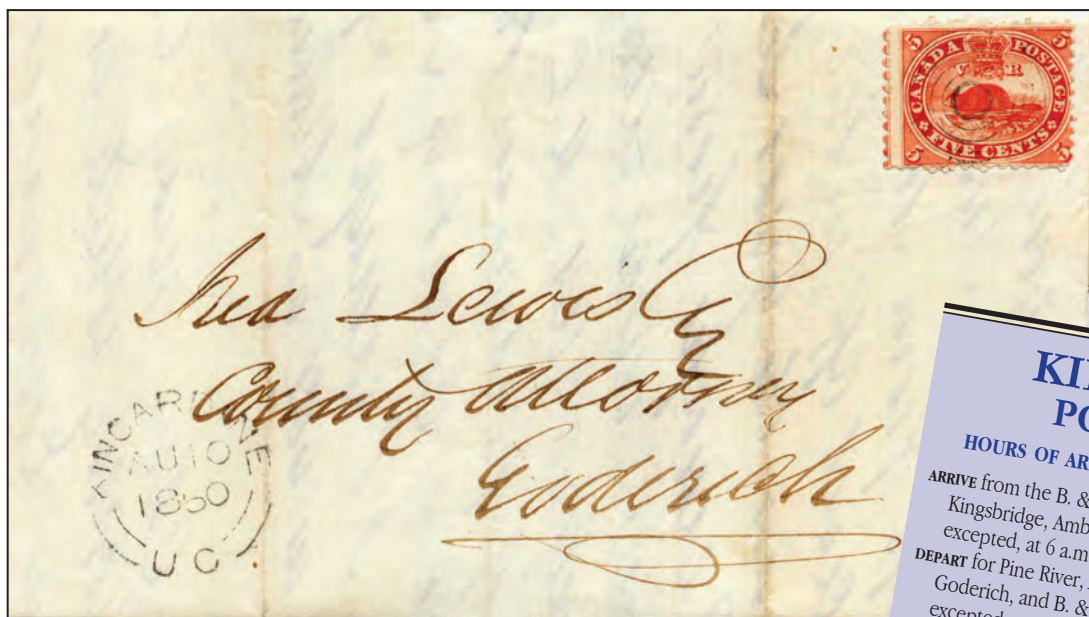 5 CANADA POSTAGE 5
V R
5 FIVE CENTS 5
Ira Lewis Esq
County Attorney
Goderich
KINCARDINE
AU 10
1860
U C
KI
PO
HOURS OF AR
ARRIVE from the B. &
Kingsbridge, Amb
excepted, at 6 a.m
DEPART for Pine River,
Goderich, and B. &
excepted